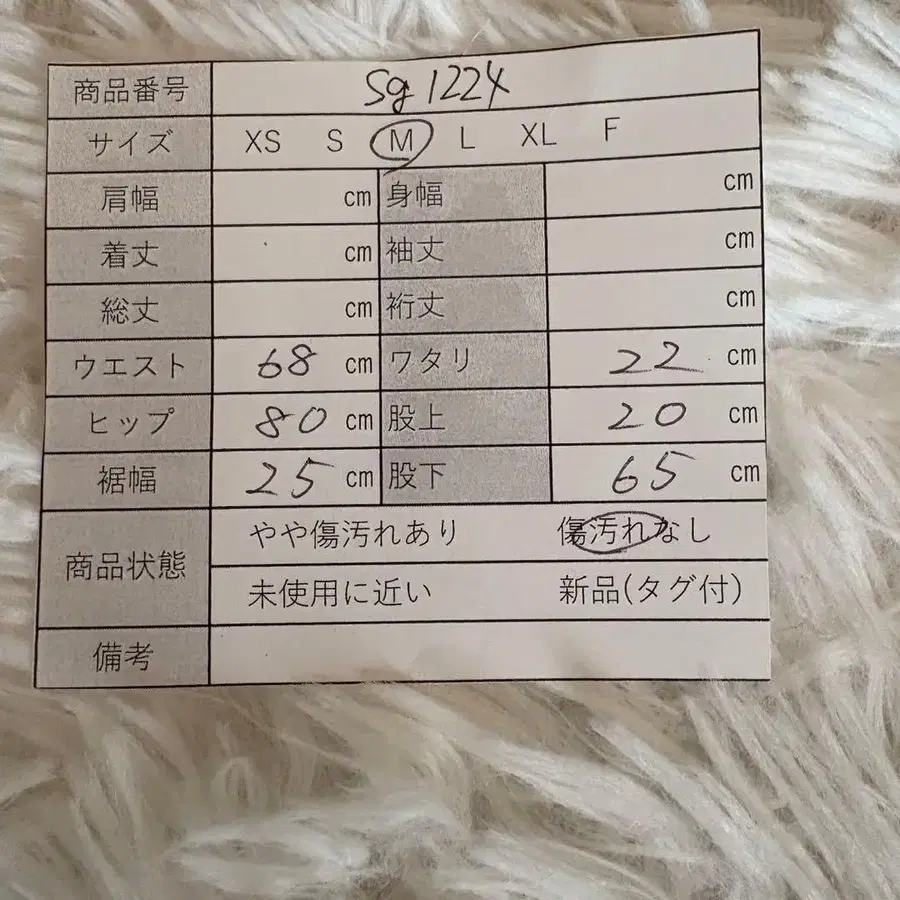 商品番号 Sg1224
サイズ XS S M L XL F
肩幅 cm 身幅 cm
着丈 cm 袖丈 cm
総丈 cm 裄丈 cm
ウエスト 68 cm ワタリ 22 cm
ヒップ 80 cm 股上 20 cm
裾幅 25 cm 股下 65 cm
商品状態 やや傷汚れあり 傷汚れなし
未使用に近い 新品(タグ付)
備考